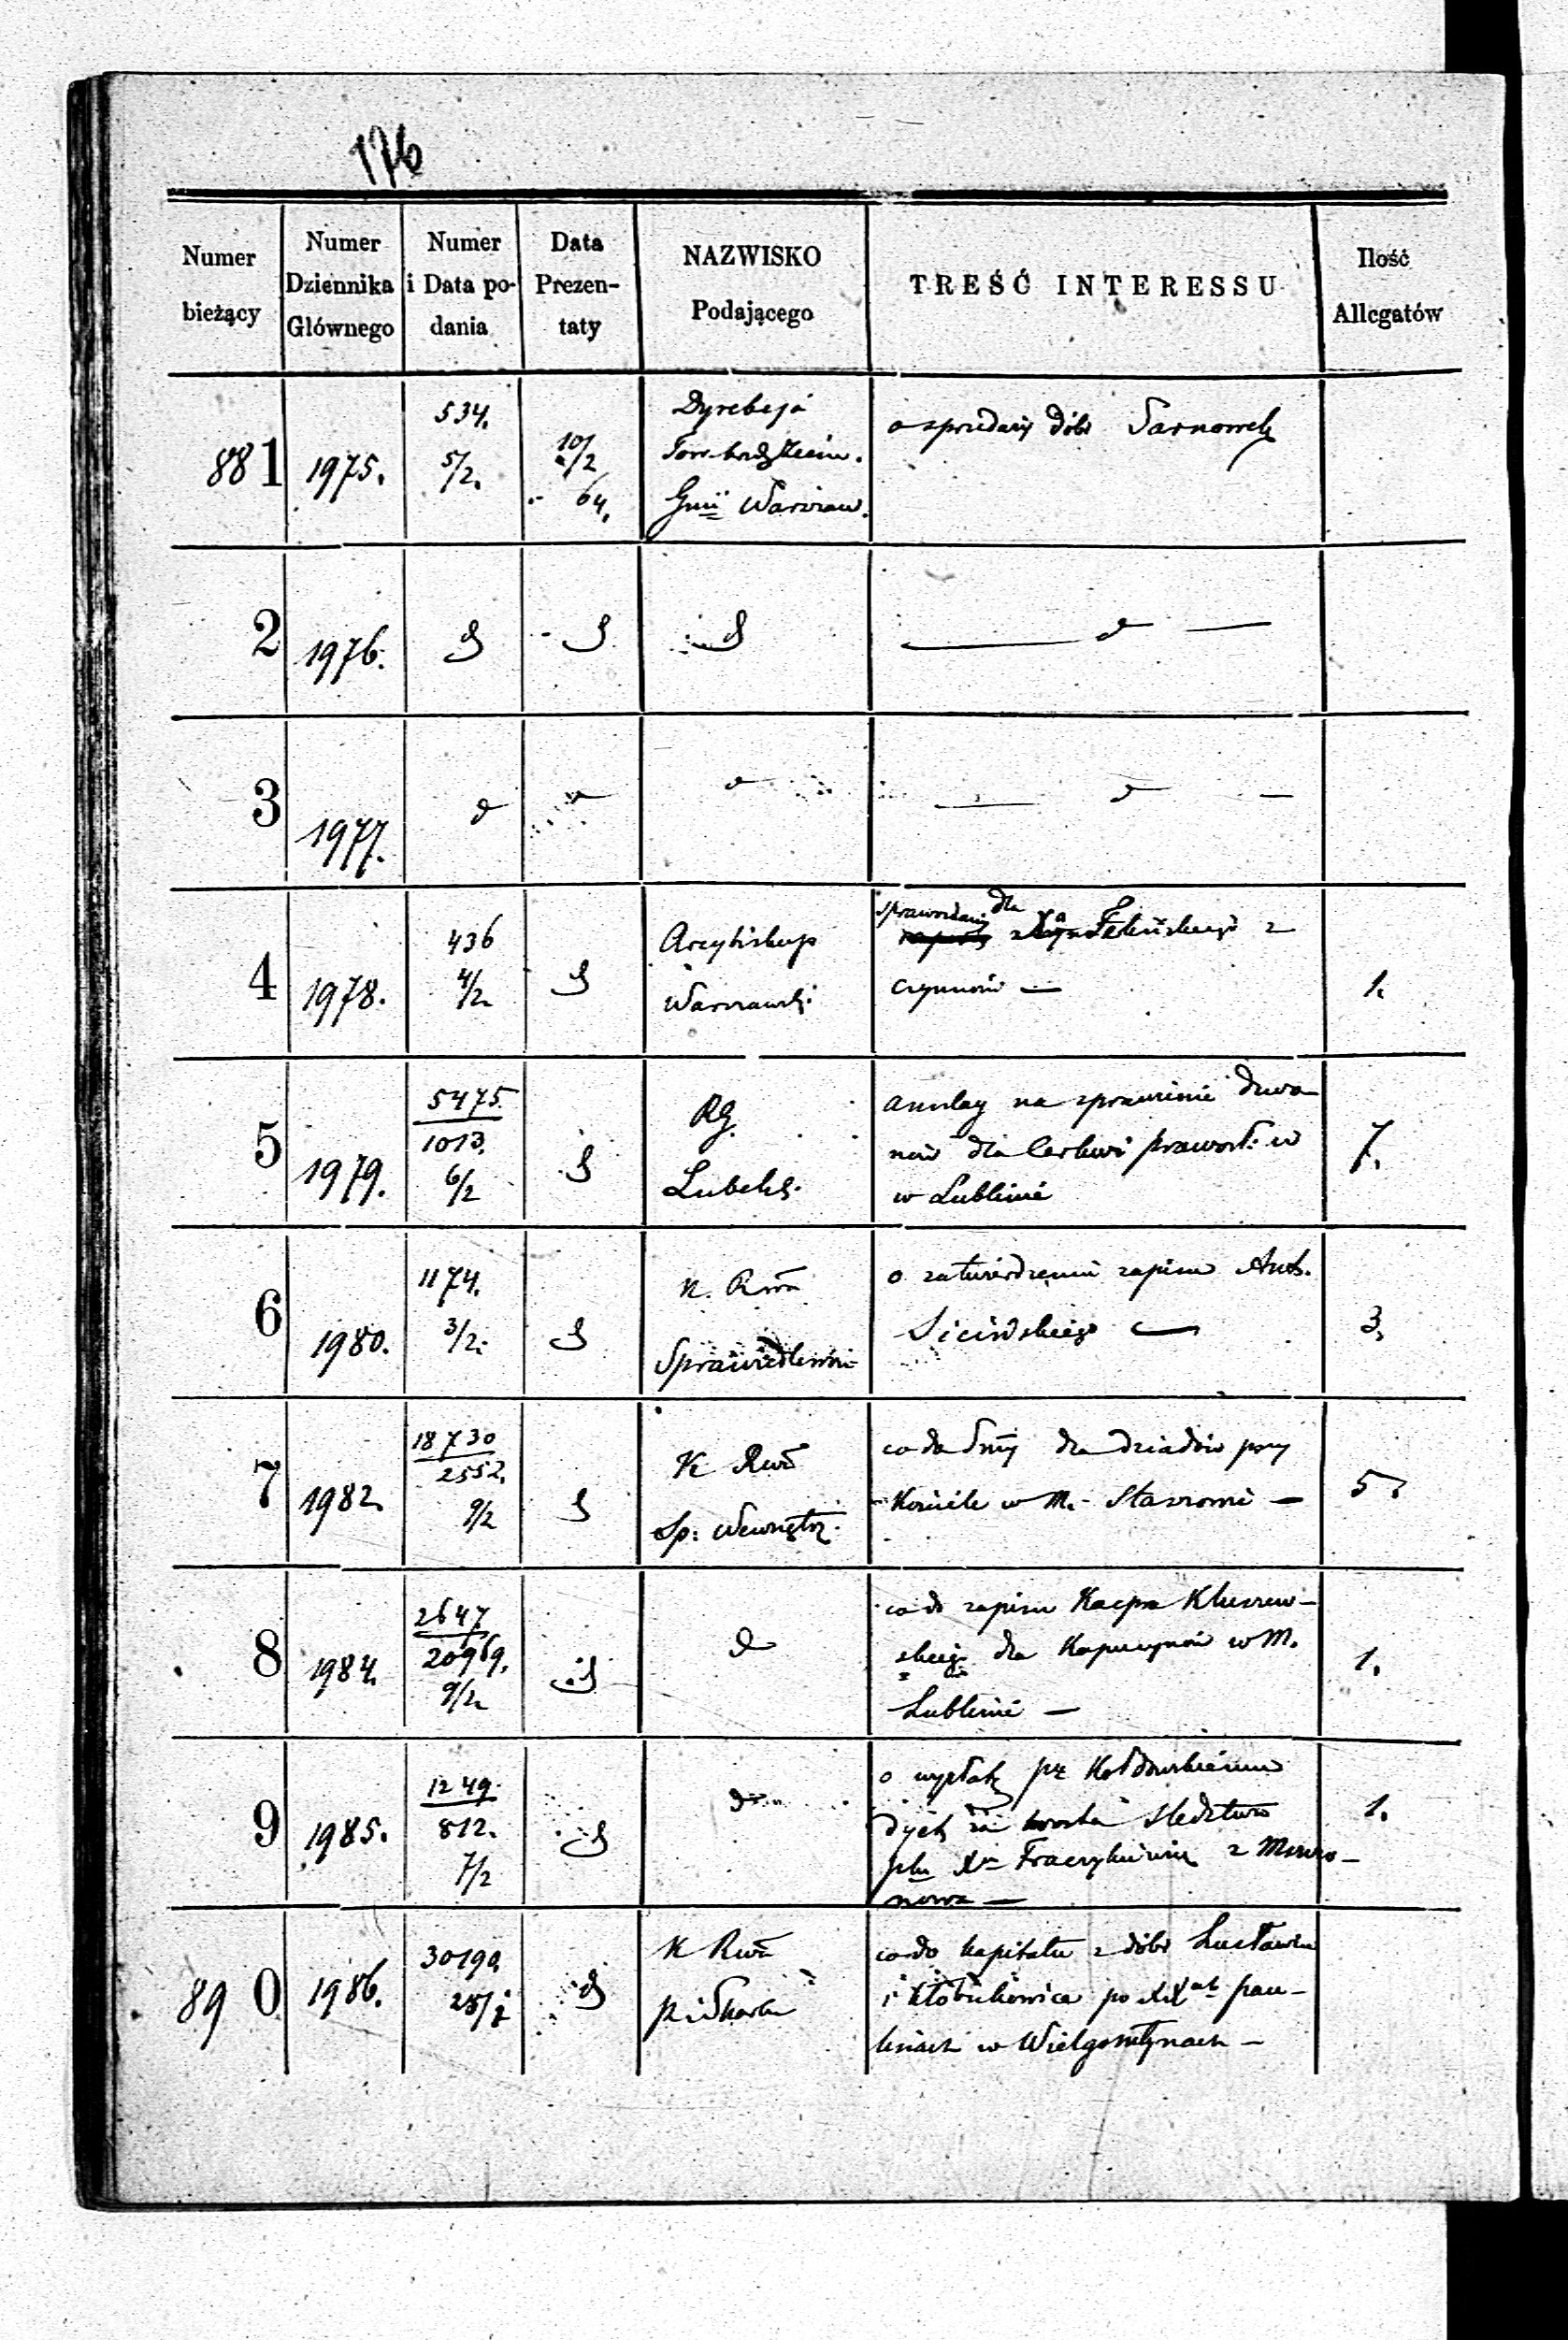 176
Numer bieżący
Numer Dziennika Głównego
Numer i Data podania
Data Prezentaty
NAZWISKO Podającego
TREŚĆ INTERESSU
Ilość Allegatów
881 1975. 534. 5/2. 10/2 64.
Dyrekcja
Gnii Warszaw.
o sprzedaży dóbr Sarnowek
2 1976. d d d — d —
3 1977. d d d — d —
4 1978. 436 4/2 d
Arcybiskup
Warszawski
sprawozdanie dla Xa Felińskiego z
czynności — 1.
5 1979. 5475. 1013. 6/2 d
RG.
Lubelsk.
Anszlag na sprawienie dzwo-
nów dla Cerkwi prawosł. w
w Lublinie 7.
6 1980. 1174. 3/2. d
K. Rwa
Sprawiedliwości
o zatwierdzeniu zapisu Ant.
Sicińskiego — 3.
7 1982. 18730 2552. 9/2 d
K Rwa
Sp: Wewnętrz.
co do dla dziadów przy
Kościele w M. Staszowie — 5.
8 1984. 2647 20969. 9/2 d d
co do zapisu Kacpra Kluszew-
skiego dla Kapucynów w M.
Lublinie — 1.
9 1985. 1249. 812. 7/2 d d
o wypłatę pz
dyet za koszta śledztwa
Xa z Mszczo-
nowa — 1.
890 1986. 30190. d
K Rwa
P. i Skarbu
co do kapitału z dóbr Lusławice
i Kłobukowice po XXach pau-
linach w Wielgomłynach —